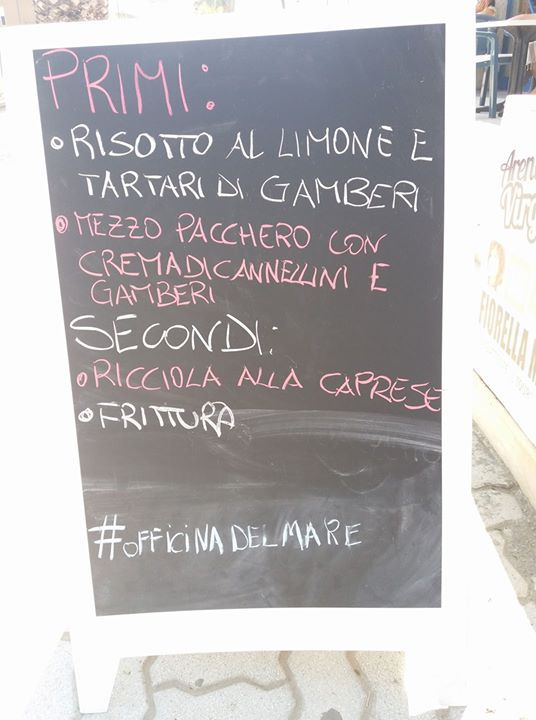 PRIMI:
• RISOTTO AL LIMONE E
TARTARI DI GAMBERI
• MEZZO PACCHERO CON
CREMA DI CANNELLINI E
GAMBERI
SECONDI:
• RICCIOLA ALLA CAPRESE
• FRITTURA
#OFFICINADELMARE
Aren
Virg
FIORELLA